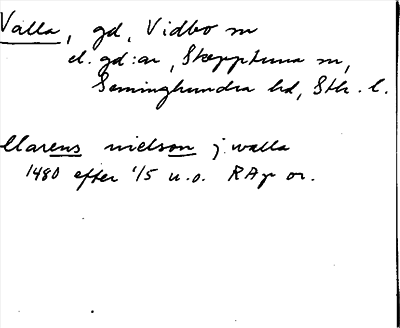 Valla, gd, Vidbo sn
el. gd:ar, Skepptuna sn,
Seminghundra hd, Sth. l.
Clarens nielson j walla
1480 efter '15 u.o. RAp or.